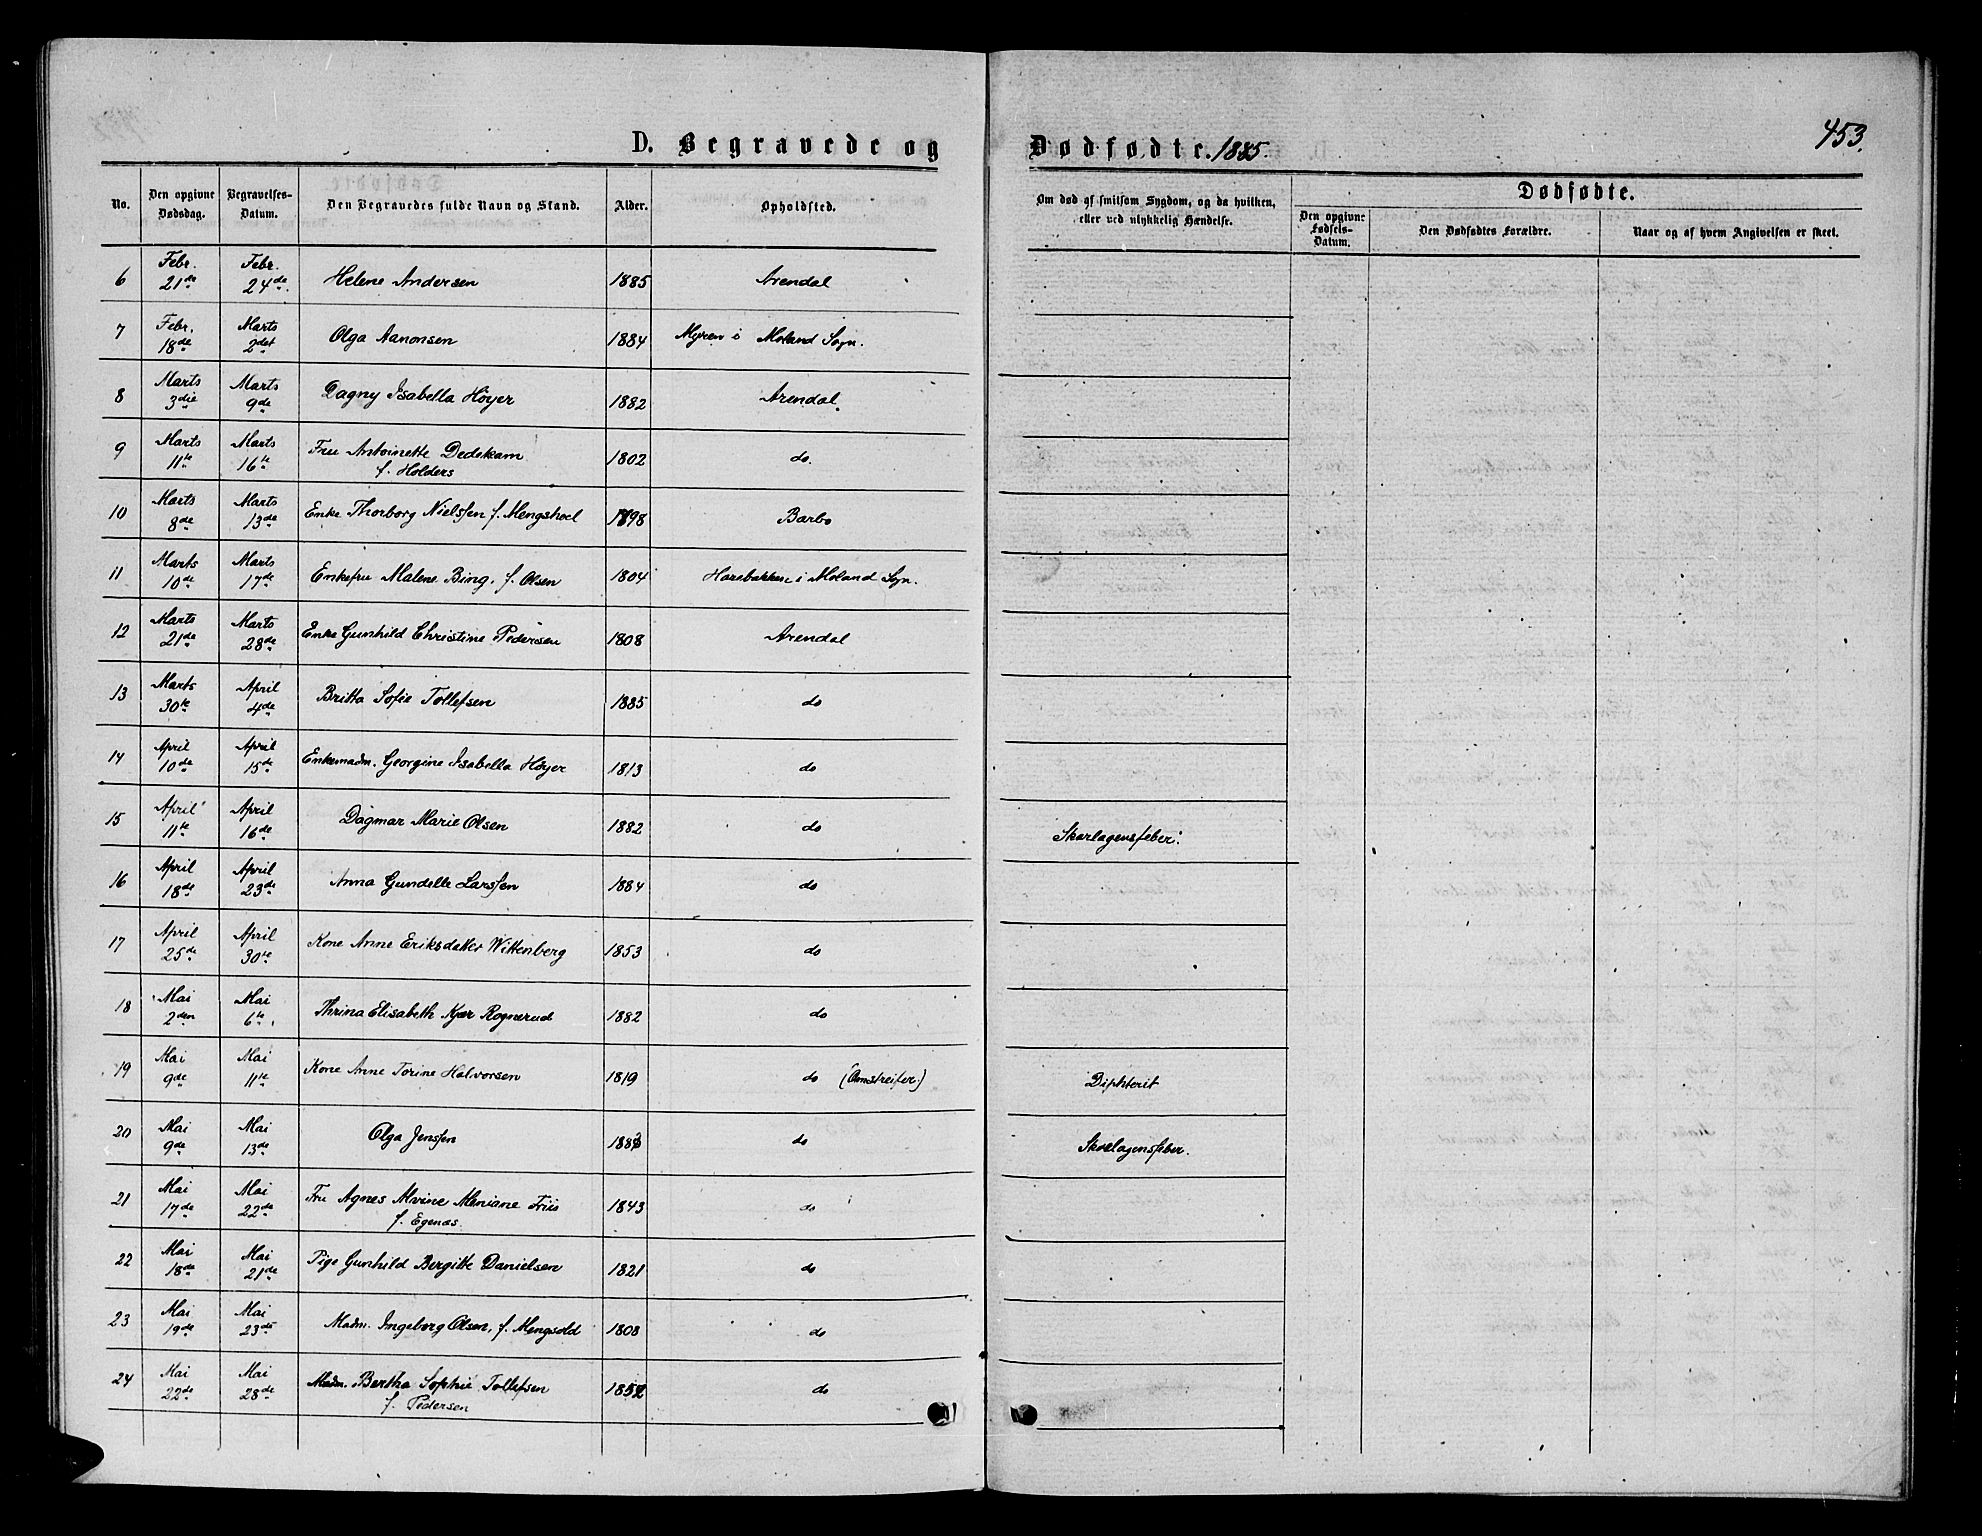 D. Begravede og Dødfødte. 1885.
453.
No.
Den opgivne Dødsdag.
Begravelses-Datum.
Den Begravedes fulde Navn og Stand.
Alder.
Opholdsted.
Om død af smitsom Sygdom, og da hvilken, eller ved ulykkelig Hændelse.
Dødfødte.
Den opgivne Fødsels-Datum.
Den Dødfødtes Forældre.
Naar og af hvem Angivelsen er skeet.
6 Febr. 21de Febr. 24de. Helene Andersen 1885 Arendal
7 Febr. 18de Marts 2det Olga Aanonsen 1884 Myren i Moland Sogn.
8 Marts 3die Marts 9de Dagny Isabella Höyer 1882 Arendal.
9 Marts 11te Marts 16te Fru Antoinette Dedekam 1802 do.
f. Holders
10 Marts 8de Marts 13de Enke Thorborg Nielsen f. Mengshoel 1798 Barbo
11 Marts 10de Marts 17de Enkefru Malene Bing, f. Olsen 1804 Harebakken i Moland Sgn.
12 Marts 21de Marts 28de Enke Gunhild Christine Pedersen 1808 Arendal
13 Marts 30te April 4de Britta Sofie Tollefsen 1885 do
14 April 10de April 15de Enkemadm. Georgine Isabella Höyer 1813 do
15 April 11te April 16de Dagmar Marie Olsen 1882 do Skarlagensfeber.
16 April 18de April 23de Anna Gundelle Larssen 1884 do
17 April 25de April 30te Kone Anne Eriksdatter Wittenberg 1853 do
18 Mai 2den Mai 6te. Thrina Elisabeth Kjær Rognerud 1882 do
19 Mai 9de Mai 11te Kone Anne Torine Halvorsen 1819 do (Omstreifer) Diphterit
20 Mai 9de Mai 13de Olga Jenssen 1883 do Skarlagensfeber.
21 Mai 17de Mai 22de Fru Agnes Alvine Meniane Friis 1843 do
f. Egenæs.
22 Mai 18de Mai 21de Pige Gunhild Bergitte Danielsen 1821 do
23 Mai 19de Mai 23de Madm. Ingeborg Olsen, f. Mengsold 1808 do
24 Mai 22de Mai 28de Madm. Bertha Sophie Tollefsen 1852 do
f. Pedersen